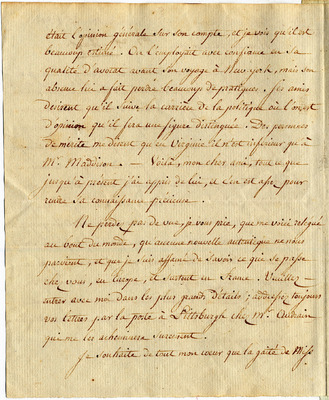 était l'opinion générale sur son compte, et je vois qu'il est
beaucoup estimé. On l'employait avec confiance en sa
qualité d'avocat avant son voyage à New-york, mais son
absence lui a fait perdre beaucoup de pratiques, ses amis
desirent qu'il suive la carrière de la politique où l'on est
d'opinion qu'il fera une figure distinguée. Des personnes
de mérite me disent qu'en Virginie il n'est inférieur qu'à
Mr. Maddison. — Voilà, mon cher ami, tout ce que
jusqu'à présent j'ai appris de lui, et c'en est assez pour
rendre sa connaissance précieuse.
Ne perdez pas de vue, je vous prie, que me voici relégué
au bout du monde, qu'aucune nouvelle autentique ne nous
parvient, et que je suis affamé de savoir ce qui se passe
chez vous, en europe, et surtout en france. Veuillez
entrer avec moi dans les plus grands détails; addressez toujours
vos lettres par la poste à Pittsburgh chez Mr.
qui me les acheminera surement.
Je souhaite de tout mon cœur que la gaité de Miss